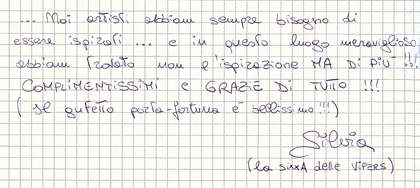 ... Noi artisti abbiam sempre bisogno di
essere ispirati ... e in questo luogo meraviglioso
abbiam trovato non l'ispirazione MA DI PIÙ !!!
COMPLIMENTISSIMI e GRAZIE DI TUTTO !!!
( il gufetto porta-fortuna è bellissimo !!!)
Silvia
(la delle VIPERS)